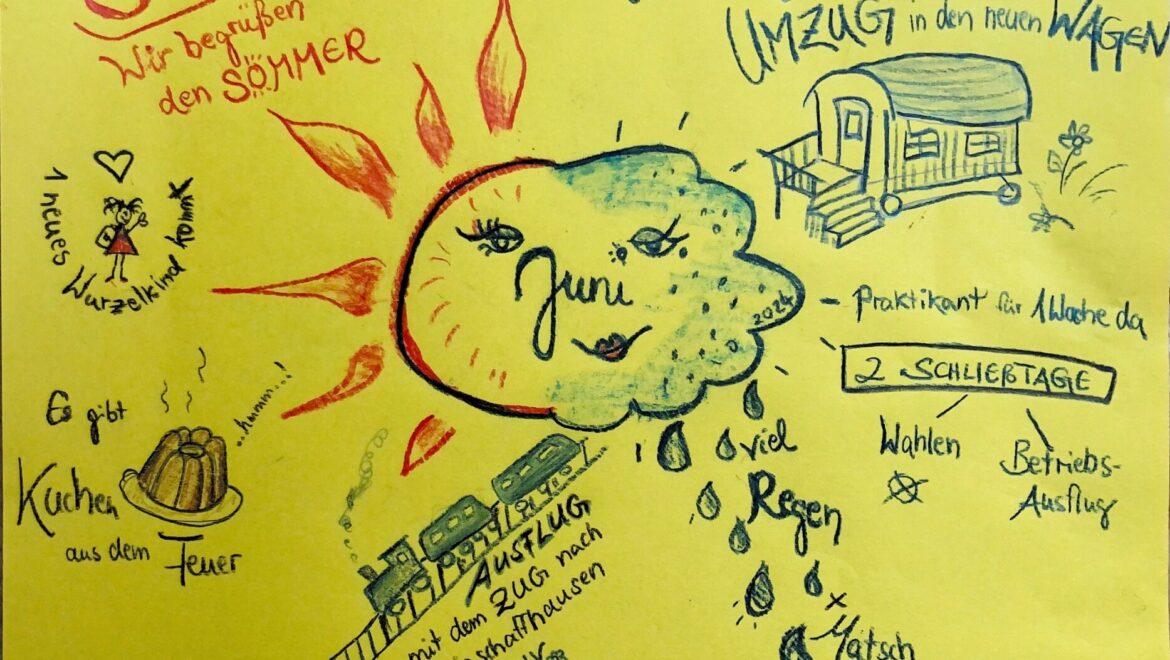 Wir begrüßen
den SOMMER
UMZUG in den neuen WAGEN
1 neues
Wurzelkind kommt
Juni
2024
Praktikant für 1 Woche da
2 SCHLIEßTAGE
Wahlen
Betriebs-
Ausflug
Es gibt
..hmmm...!
Kuchen
aus dem
Feuer
AUSFLUG
mit dem ZUG nach
schaffhausen
viel
Regen
x
Matsch